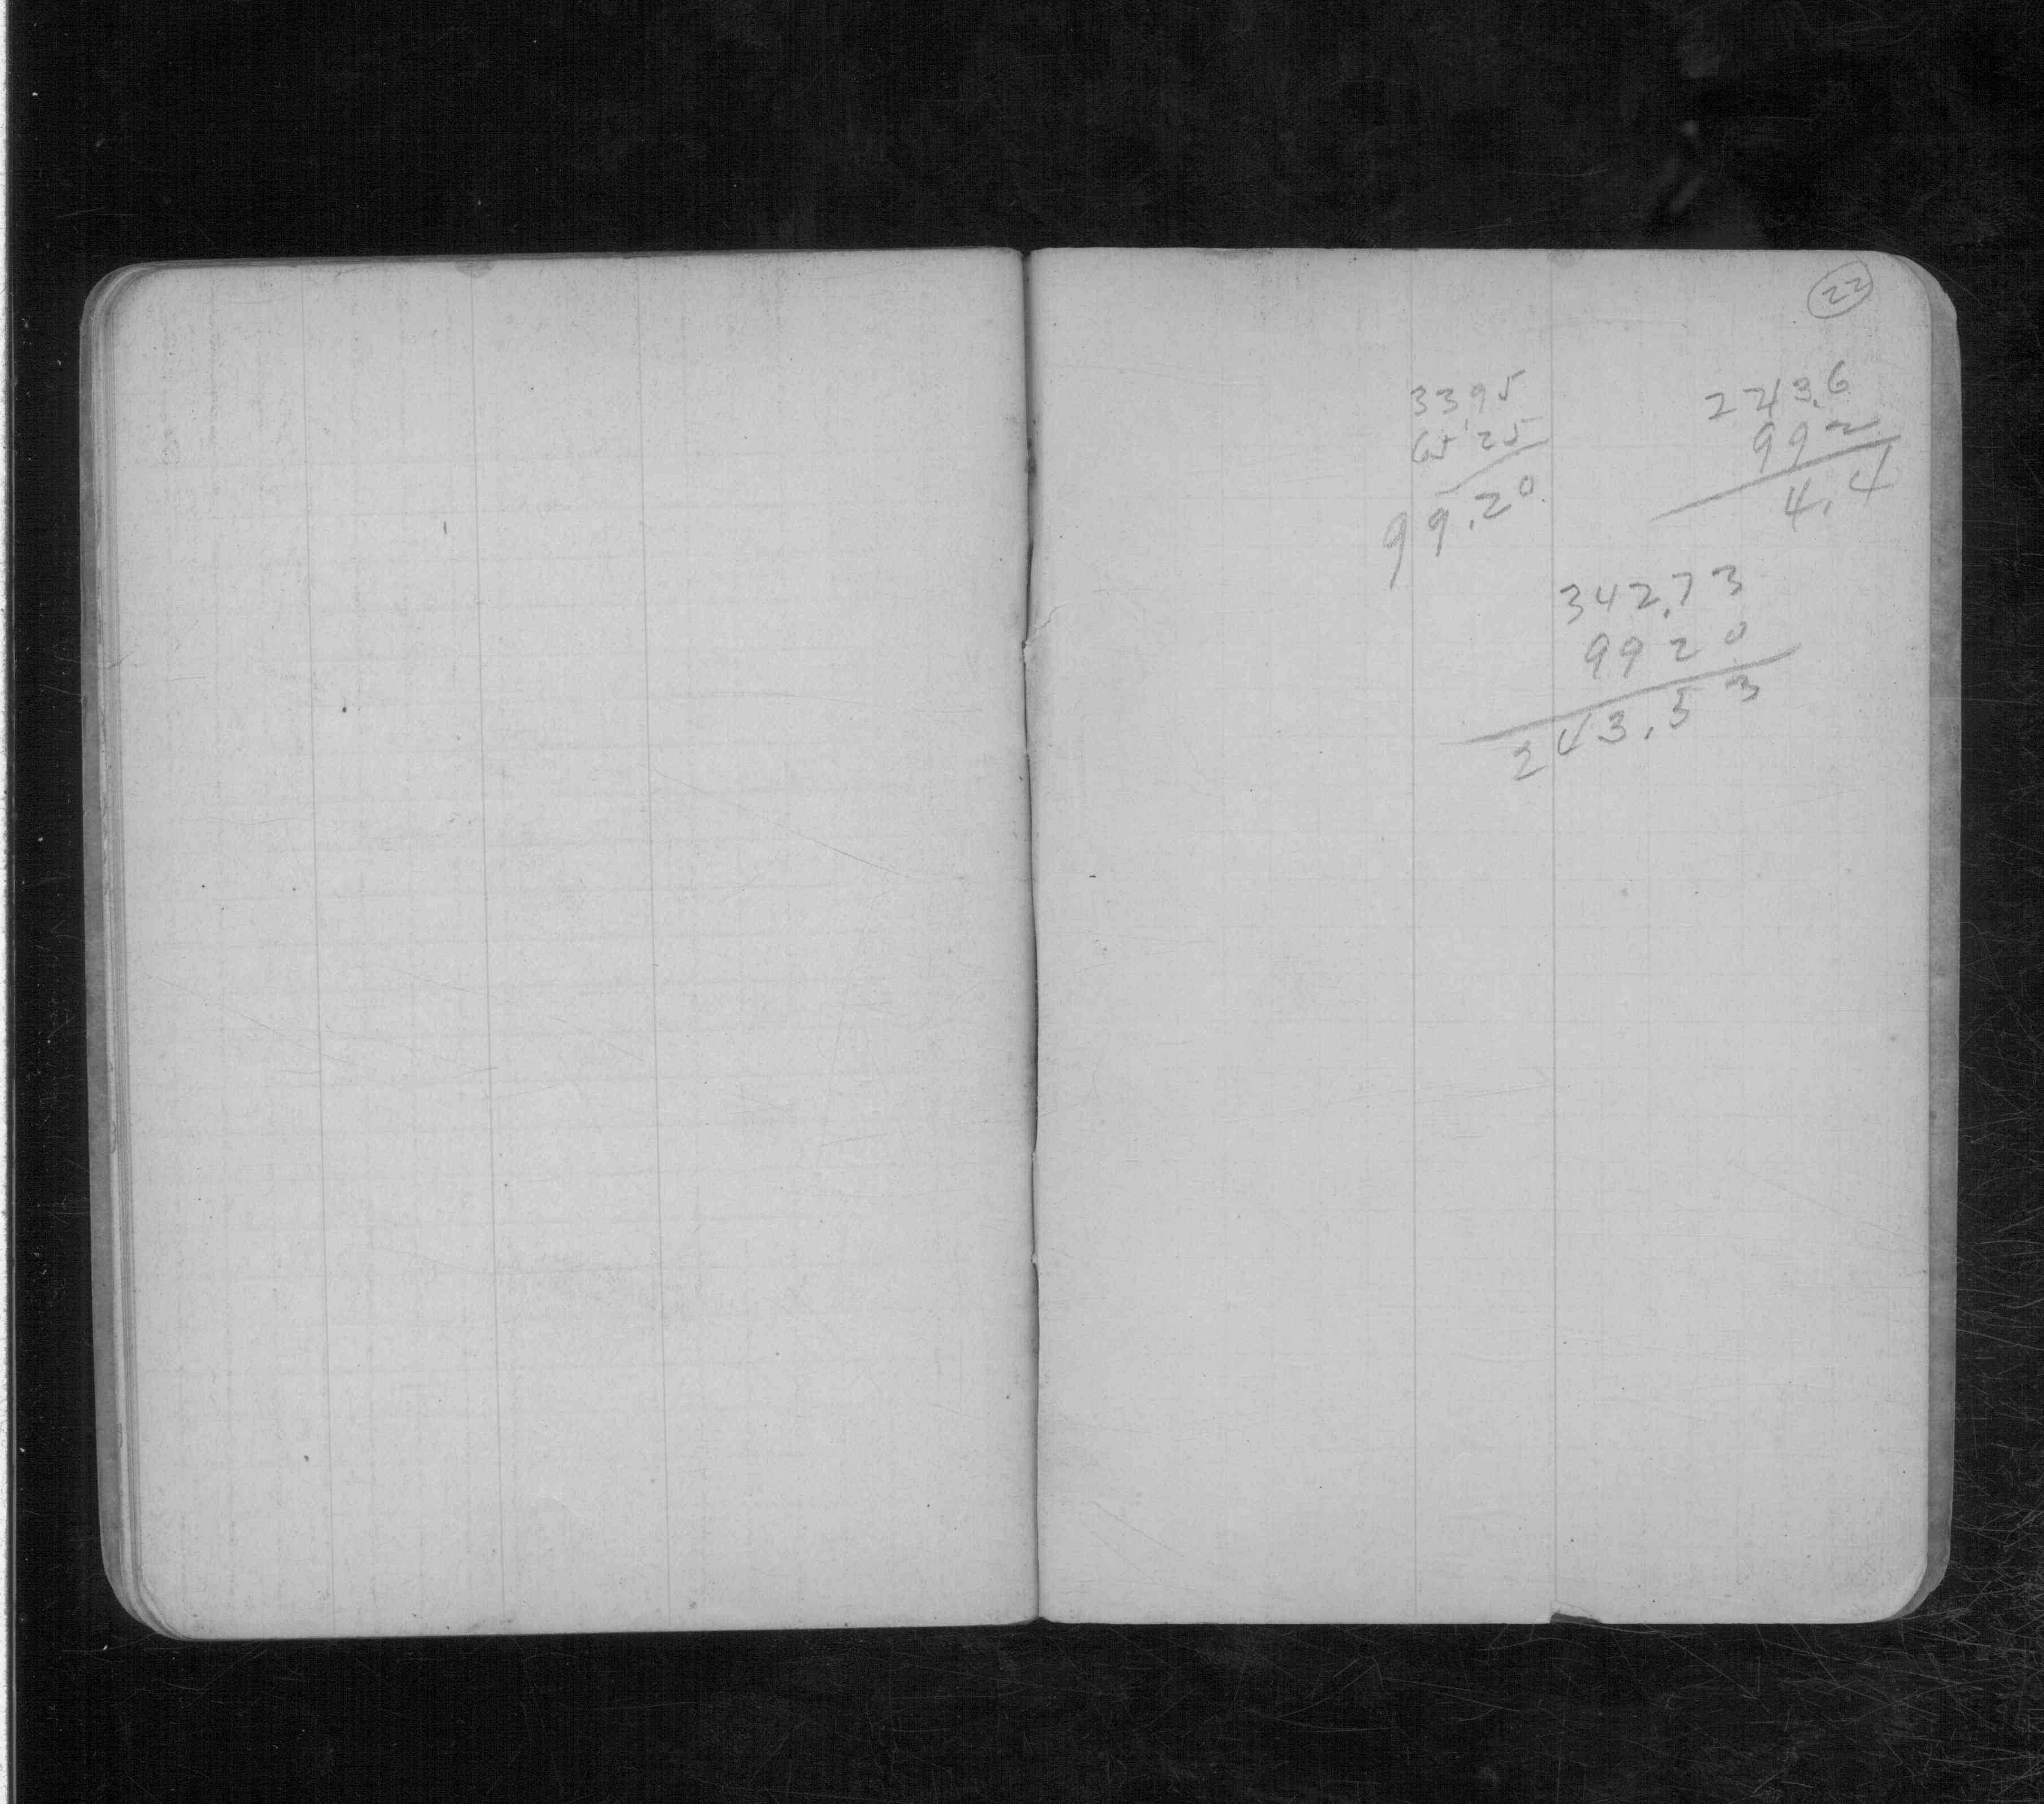 22
3395
6525
99.20
243.6
992
4.4
342.73
9920
243.53